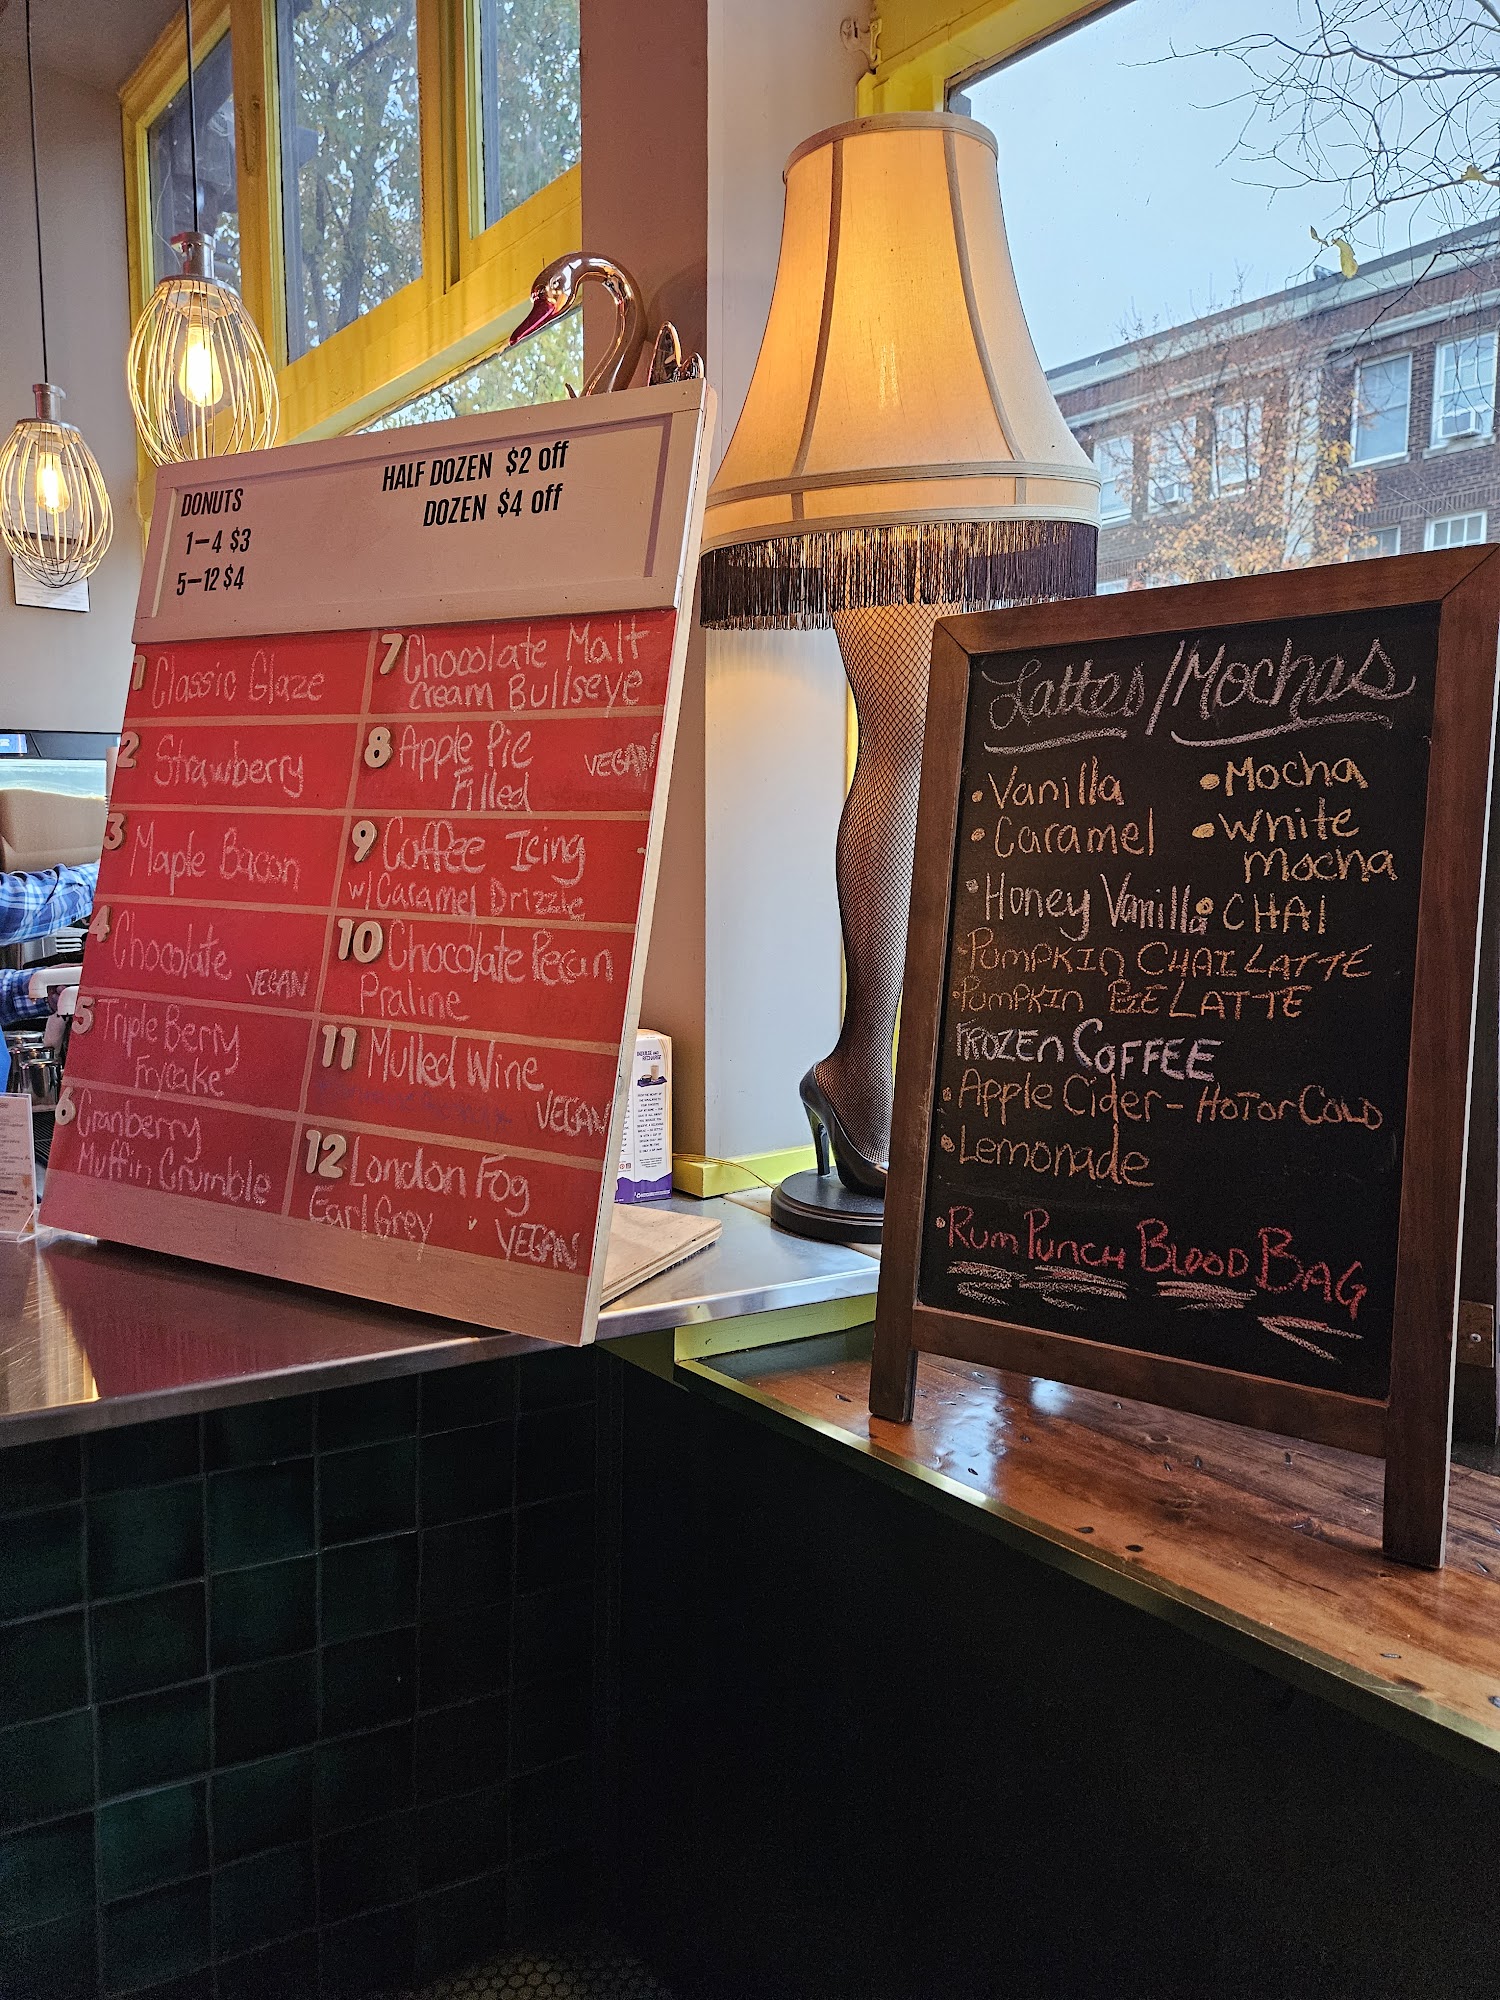 DONUTS
1-4 $3
5-12 $4
HALF DOZEN $2 off
DOZEN $4 off
1 Classic Glaze
2 Strawberry
3 Maple Bacon
4 Chocolate VEGAN
5 Triple Berry
Frycake
6 Cranberry
Muffin Crumble
7 Chocolate Malt
Cream Bullseye
8 Apple Pie
Filled VEGAN
9 Coffee Icing
w/ Caramel Drizzle
10 Chocolate Pecan
Praline
11 Mulled Wine
VEGAN
12 London Fog
Earl Grey VEGAN
Lattes/Mochas
• Vanilla
• Caramel
• Honey Vanilla
• Mocha
• White
Mocha
• CHAI
• PUMPKIN CHAI LATTE
• PUMPKIN PIE LATTE
FROZEN COFFEE
• Apple Cider - HOT OR COLD
• Lemonade
• RUM PUNCH BLOOD BAG